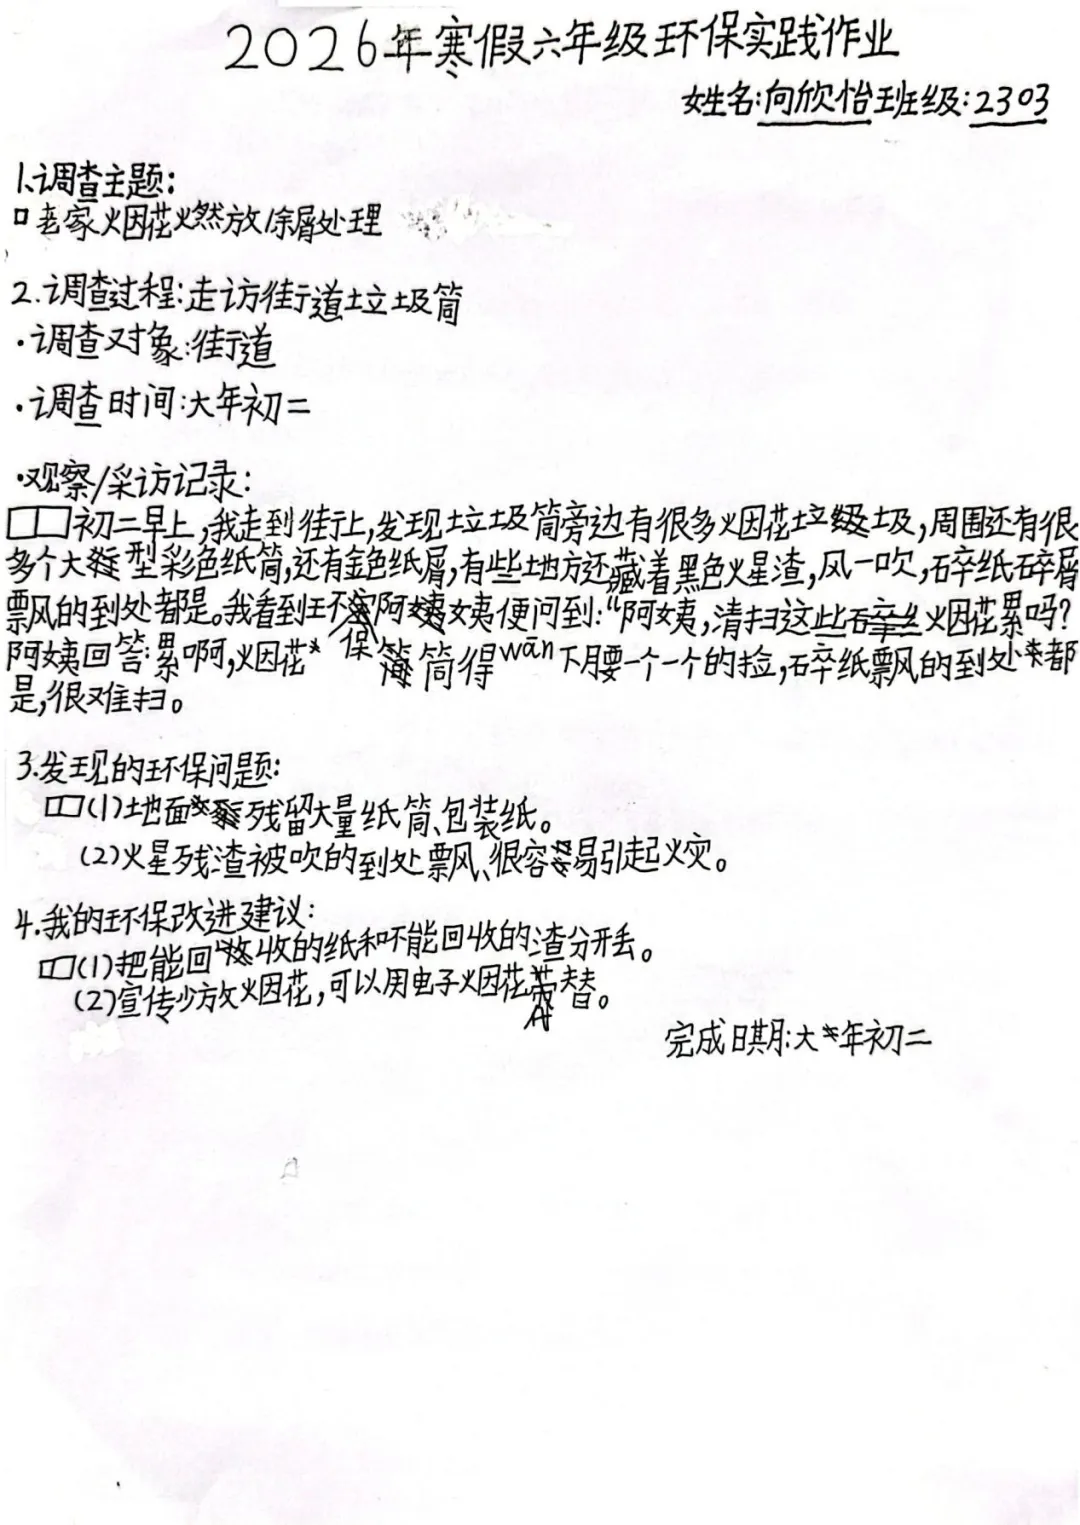 2026年寒假六年级环保实践作业
姓名:向欣怡班级:2303
1.调查主题:
老家烟花燃放余屑处理
2.调查过程:走访街道垃圾筒
·调查对象:街道
·调查时间:大年初二
·观察/采访记录:
初二早上,我走到街上,发现垃圾筒旁边有很多烟花垃圾,周围还有很
多个大型彩色纸筒,还有金色纸屑,有些地方还藏着黑色火星渣,风一吹,碎纸碎屑
飘的到处都是。我看到环保阿姨便问到:“阿姨,清扫这些烟花累吗?
阿姨回答:累啊,烟花筒得wān下腰一个一个的捡,碎纸飘的到处都
是,很难扫。
3.发现的环保问题:
(1)地面残留大量纸筒、包装纸。
(2)火星残渣被吹的到处飘、很容易引起火灾。
4.我的环保改进建议:
(1)把能回收的纸和不能回收的渣分开丢。
(2)宣传少放烟花,可以用电子烟花代替。
完成日期:大年初二